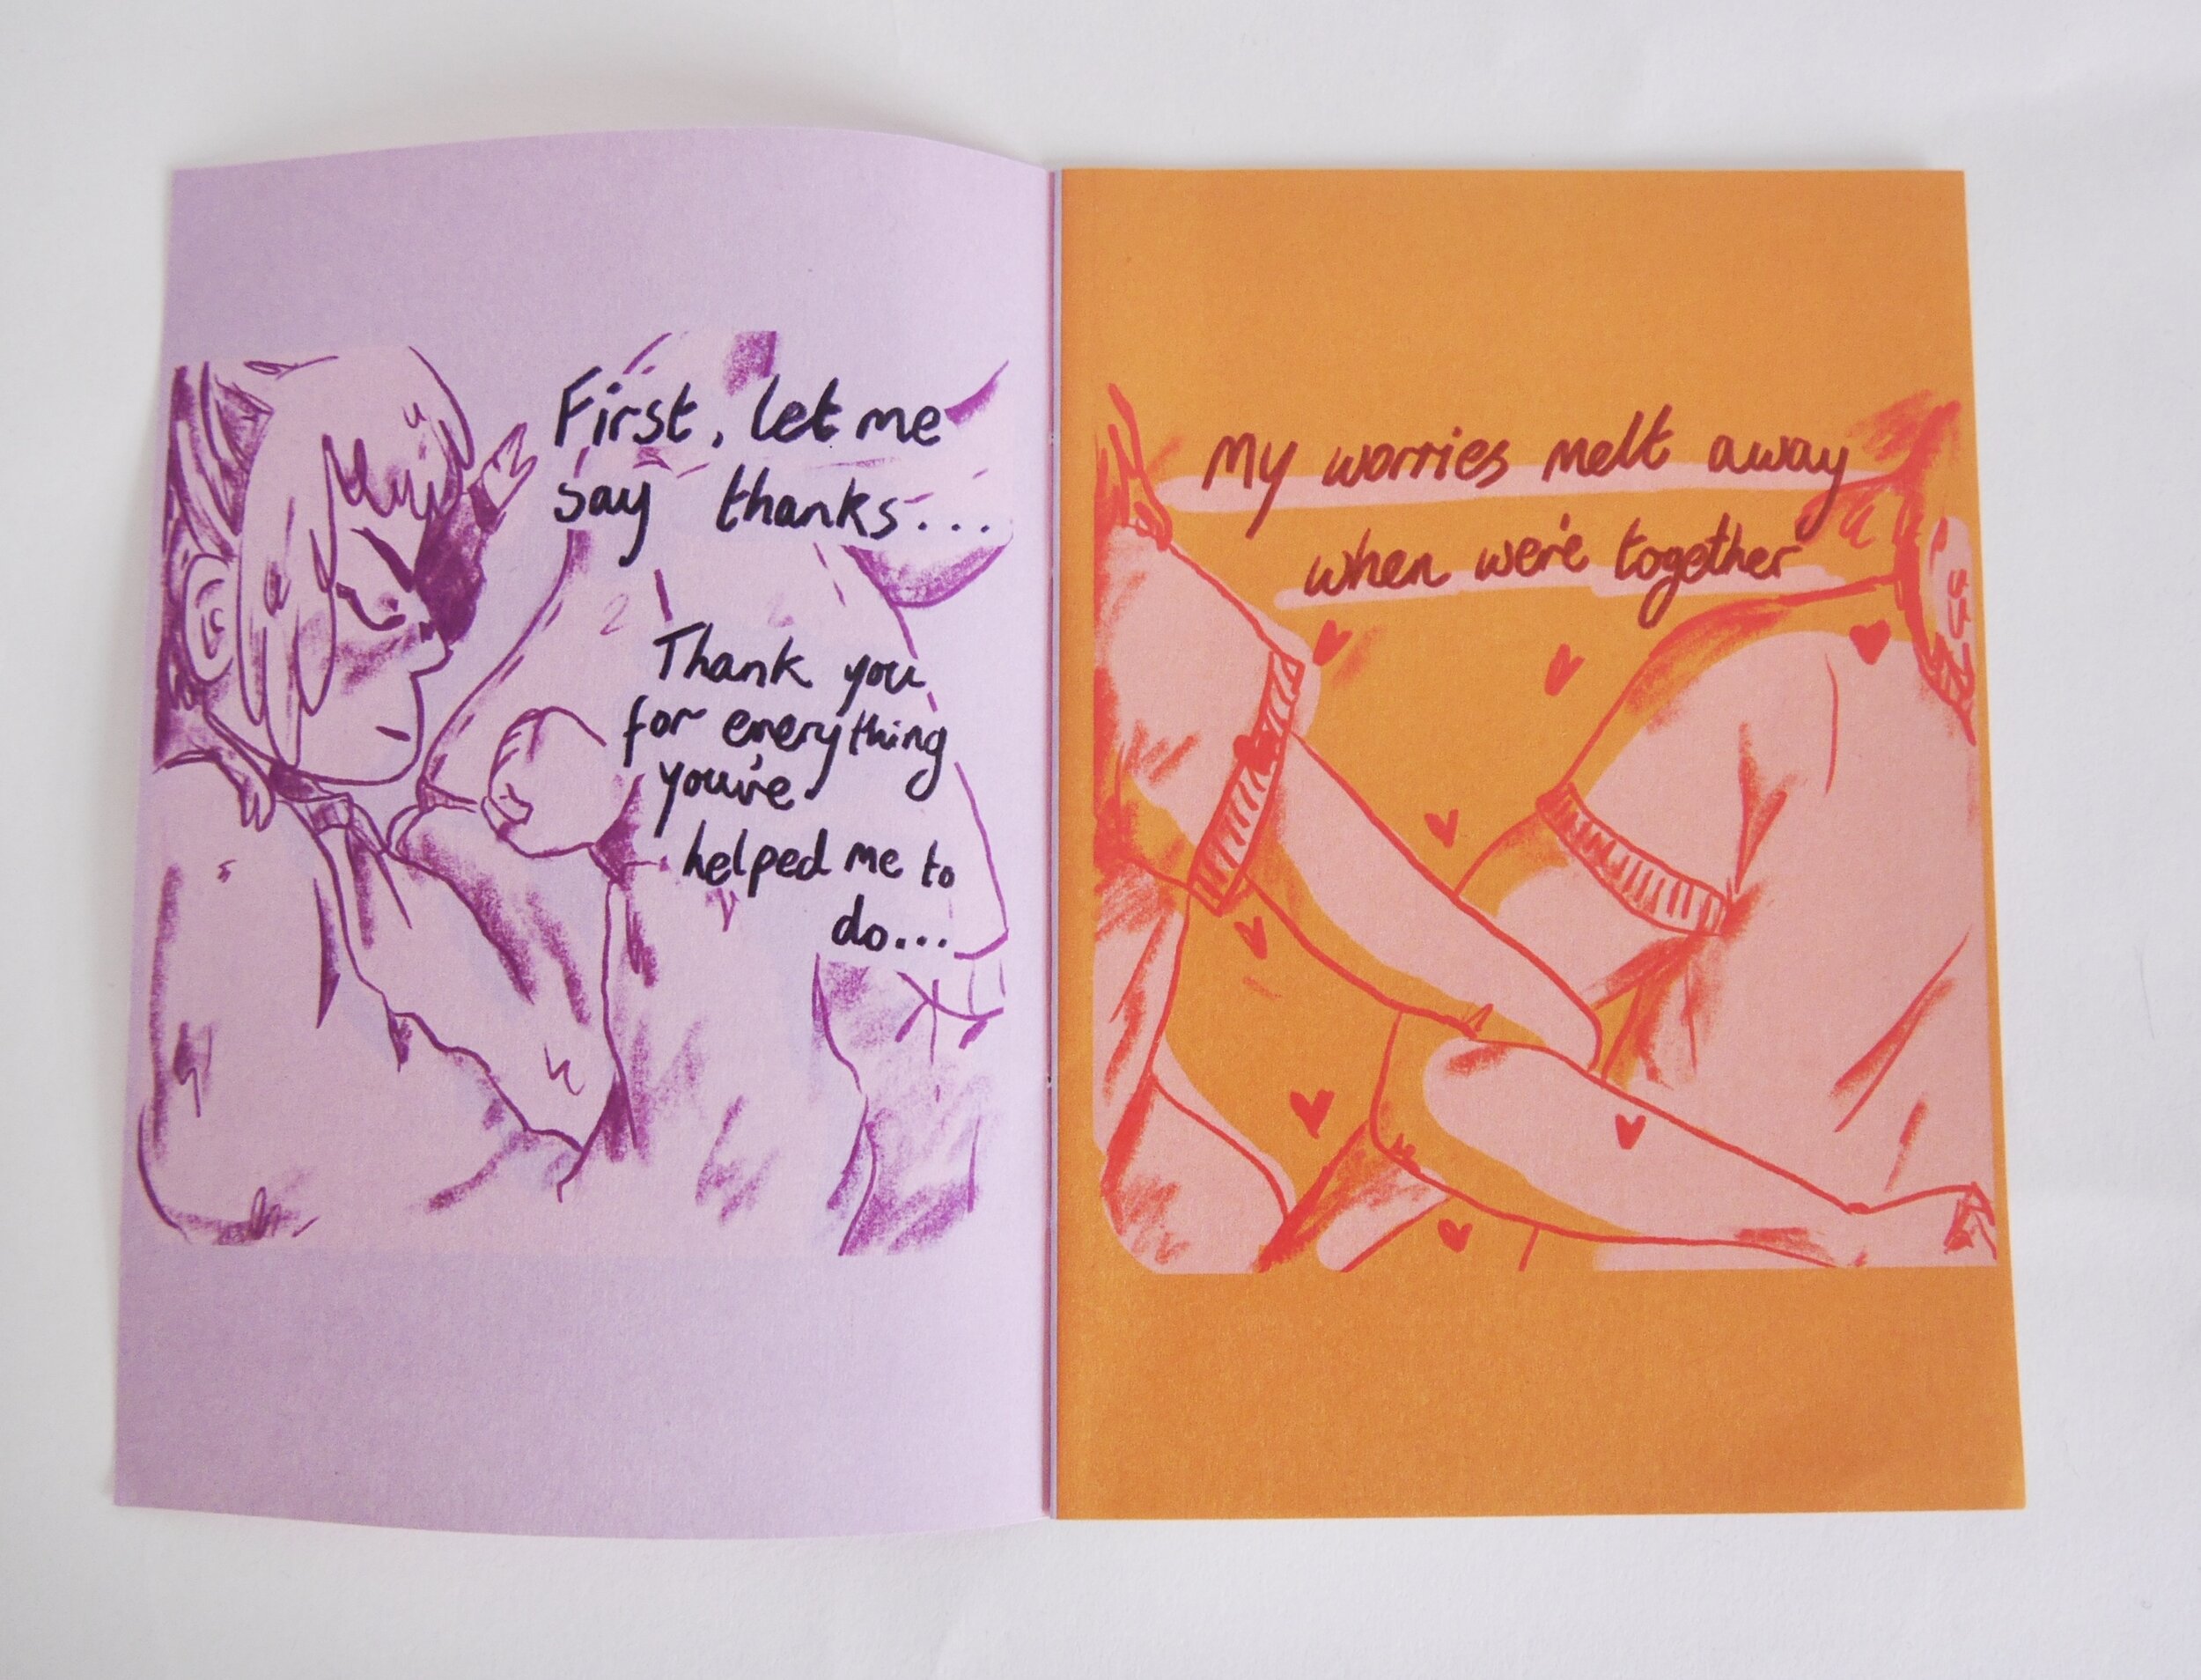 First, let me
say thanks...
Thank you
for everything
you've
helped me to
do...
My worries melt away
when we're together